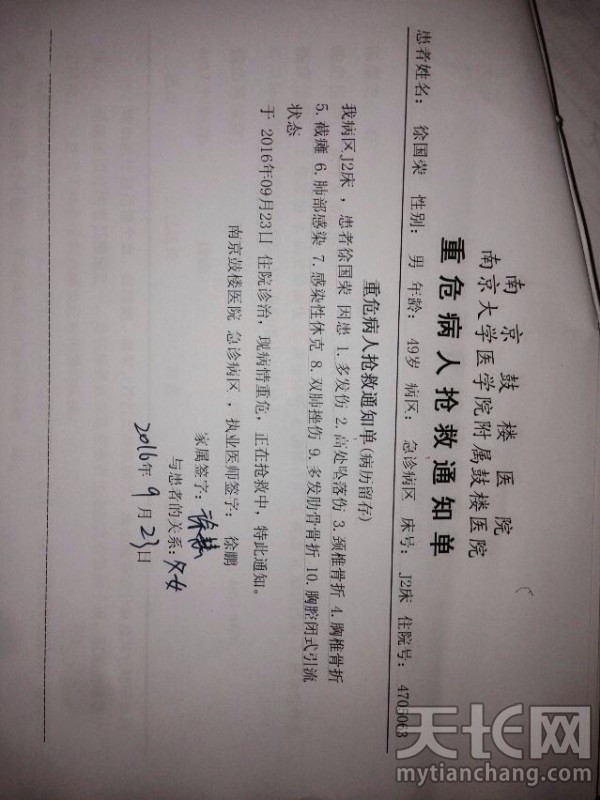 南京鼓楼医院
南京大学医学院附属鼓楼医院
重危病人抢救通知单
患者姓名： 徐国荣 性别： 男 年龄： 49岁 病区： 急诊病区 床号： J2床 住院号： 4705063
重危病人抢救通知单(病历留存)
我病区J2床，患者徐国荣 因患 1. 多发伤 2. 高处坠落伤 3. 颈椎骨折 4. 胸椎骨折
5. 截瘫 6. 肺部感染 7. 感染性休克 8. 双肺挫伤 9. 多发肋骨骨折 10. 胸腔闭式引流
状态
于 2016年09月23日 住院诊治，现病情重危，正在抢救中，特此通知。
南京鼓楼医院 急诊病区，执业医师签字： 徐鹏
家属签字：
与患者的关系：父女
2016年 9月 23日
天长网
mytianchang.com